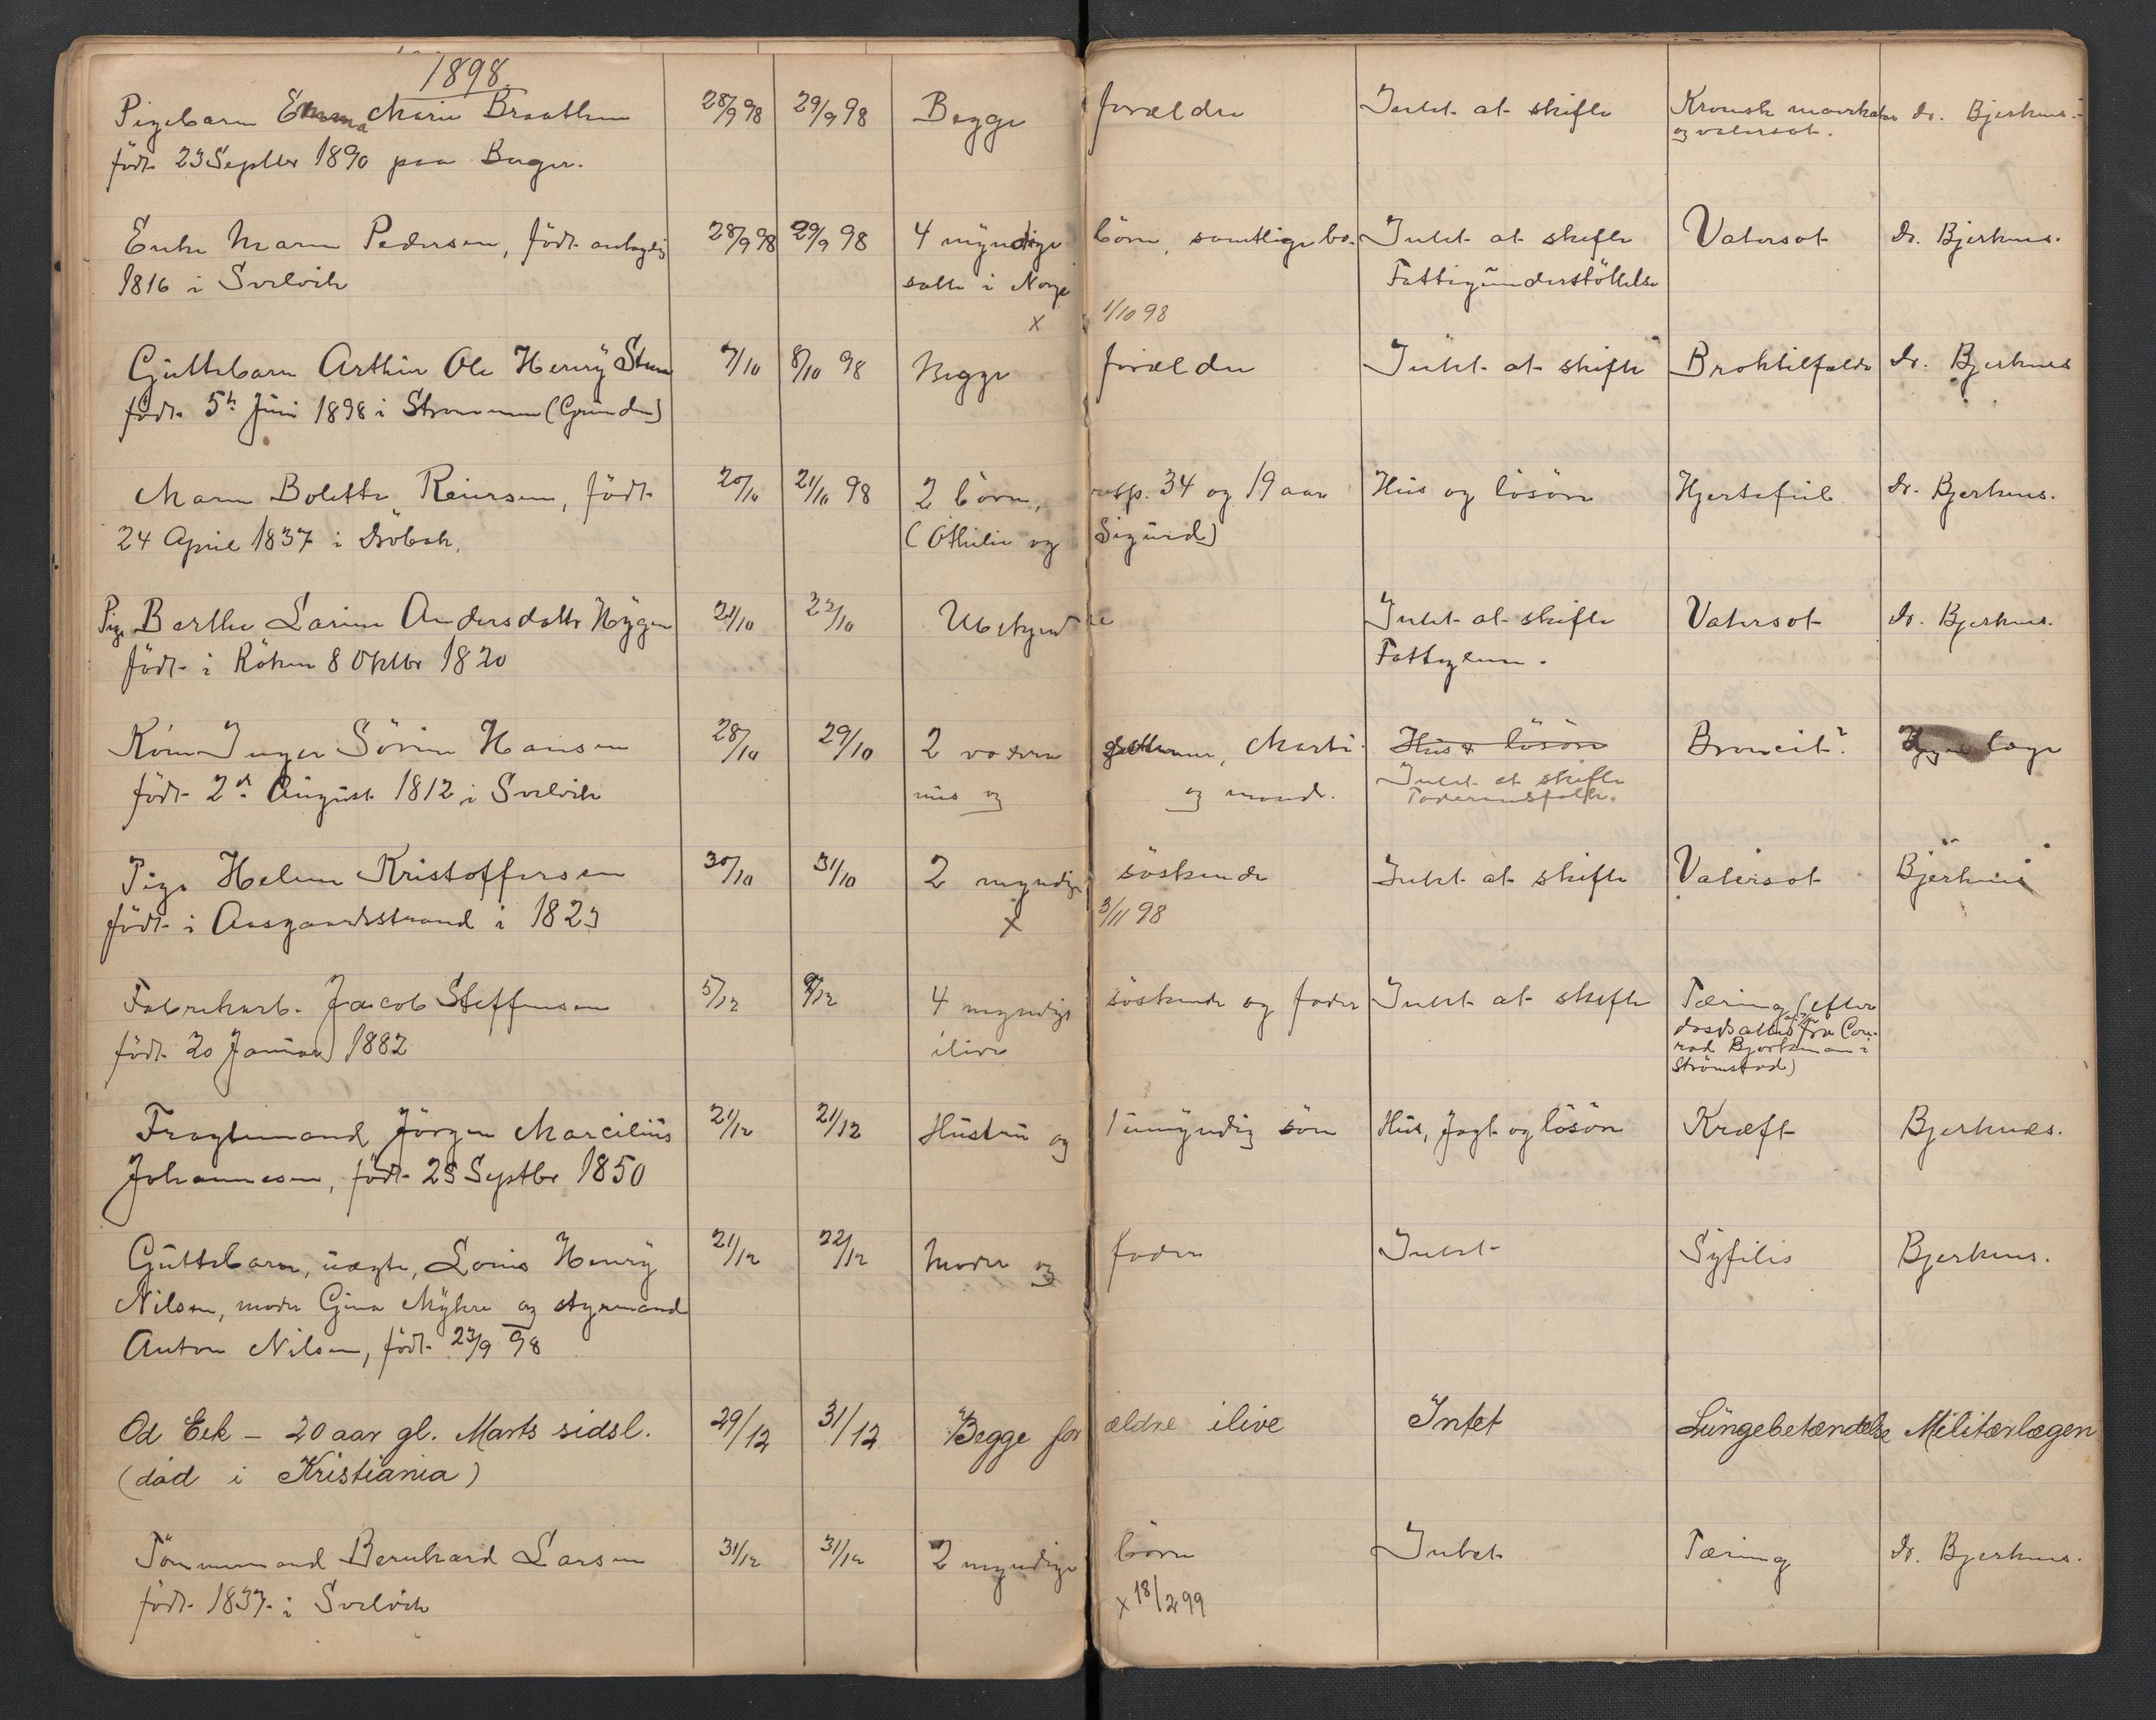 1898.
Pigebarn Emma Marie Braathen 28/9 98 29/9 98 Begge forældre Intet at skifte Kronisk mavekatar dr. Bjerknes.
født 23 Septbr 1890 paa Berger. og vatersot.
Enke Maren Pedersen, født antagelig 28/9 98 29/9 98 4 myndige börn, samtlige bo- Intet at skifte Vatersot dr. Bjerknes.
1816 i Svelvik satte i Norge Fattigunderstöttelse
x 1/10 98
Guttebarn Arthur Ole Henry Steen 7/10 8/10 98 Begge forældre Intet at skifte Broktilfælde dr. Bjerknes
født 5te Juni 1898 i Strømmen (Grunden)
Maren Bolette Reiersen, født 20/10 21/10 98 2 börn, resp. 34 og 19 aar Hus og lösöre Hjertefeil dr. Bjerknes.
24 April 1837 i Dröbak. (Othilie og Sigurd)
Pige Berthe Larine Andersdatter Høgen 21/10 22/10 Ubekjendte Intet at skifte Vatersot dr. Bjerknes.
født i Röken 8 Oktbr 1820 Fattiglem.
Kone Inger Sörine Hansen 28/10 29/10 2 voxne Marti- Hus & lösöre Broncit? læge
født 2den August 1812 i Svelvik nus og og mand. Intet at skifte
Foderaadsfolk.
Pige Helene Kristoffersen 30/10 31/10 2 myndige söskende Intet at skifte Vatersot Bjerknes
født i Aasgaardsstrand i 1823 x 3/11 98
Fabrikarb. Jacob Steffensen 5/12 /12 4 myndige söskende og fader Intet at skifte Tæring (efter
født 20 Januar 1882 ilive dødsattest fra Con-
rad Bjorkman i
Strömstad)
Fragtemand Jörgen Marcilius 21/12 21/12 Hustru og 1 umyndig sön Hus, Jagt og lösöre Kræft Bjerknes.
Johannesen, født 25 Septbr 1850
Guttebarn, uægte, Louis Henry 21/12 22/12 Moder og fader Intet Syfilis Bjerknes.
Nilsen, moder Gina Myhre og styrmand
Anton Nilsen, født 23/9 98
Od Eek – 20 aar gl. Marts sidsl. 29/12 31/12 Begge forældre ilive Intet Lungebetændelse Militærlægen
(død i Kristiania)
Tömmermand Bernhard Larsen 31/12 31/12 2 myndige börn Intet Tæring dr. Bjerknes.
født 1837 i Svelvik x 18/2 99